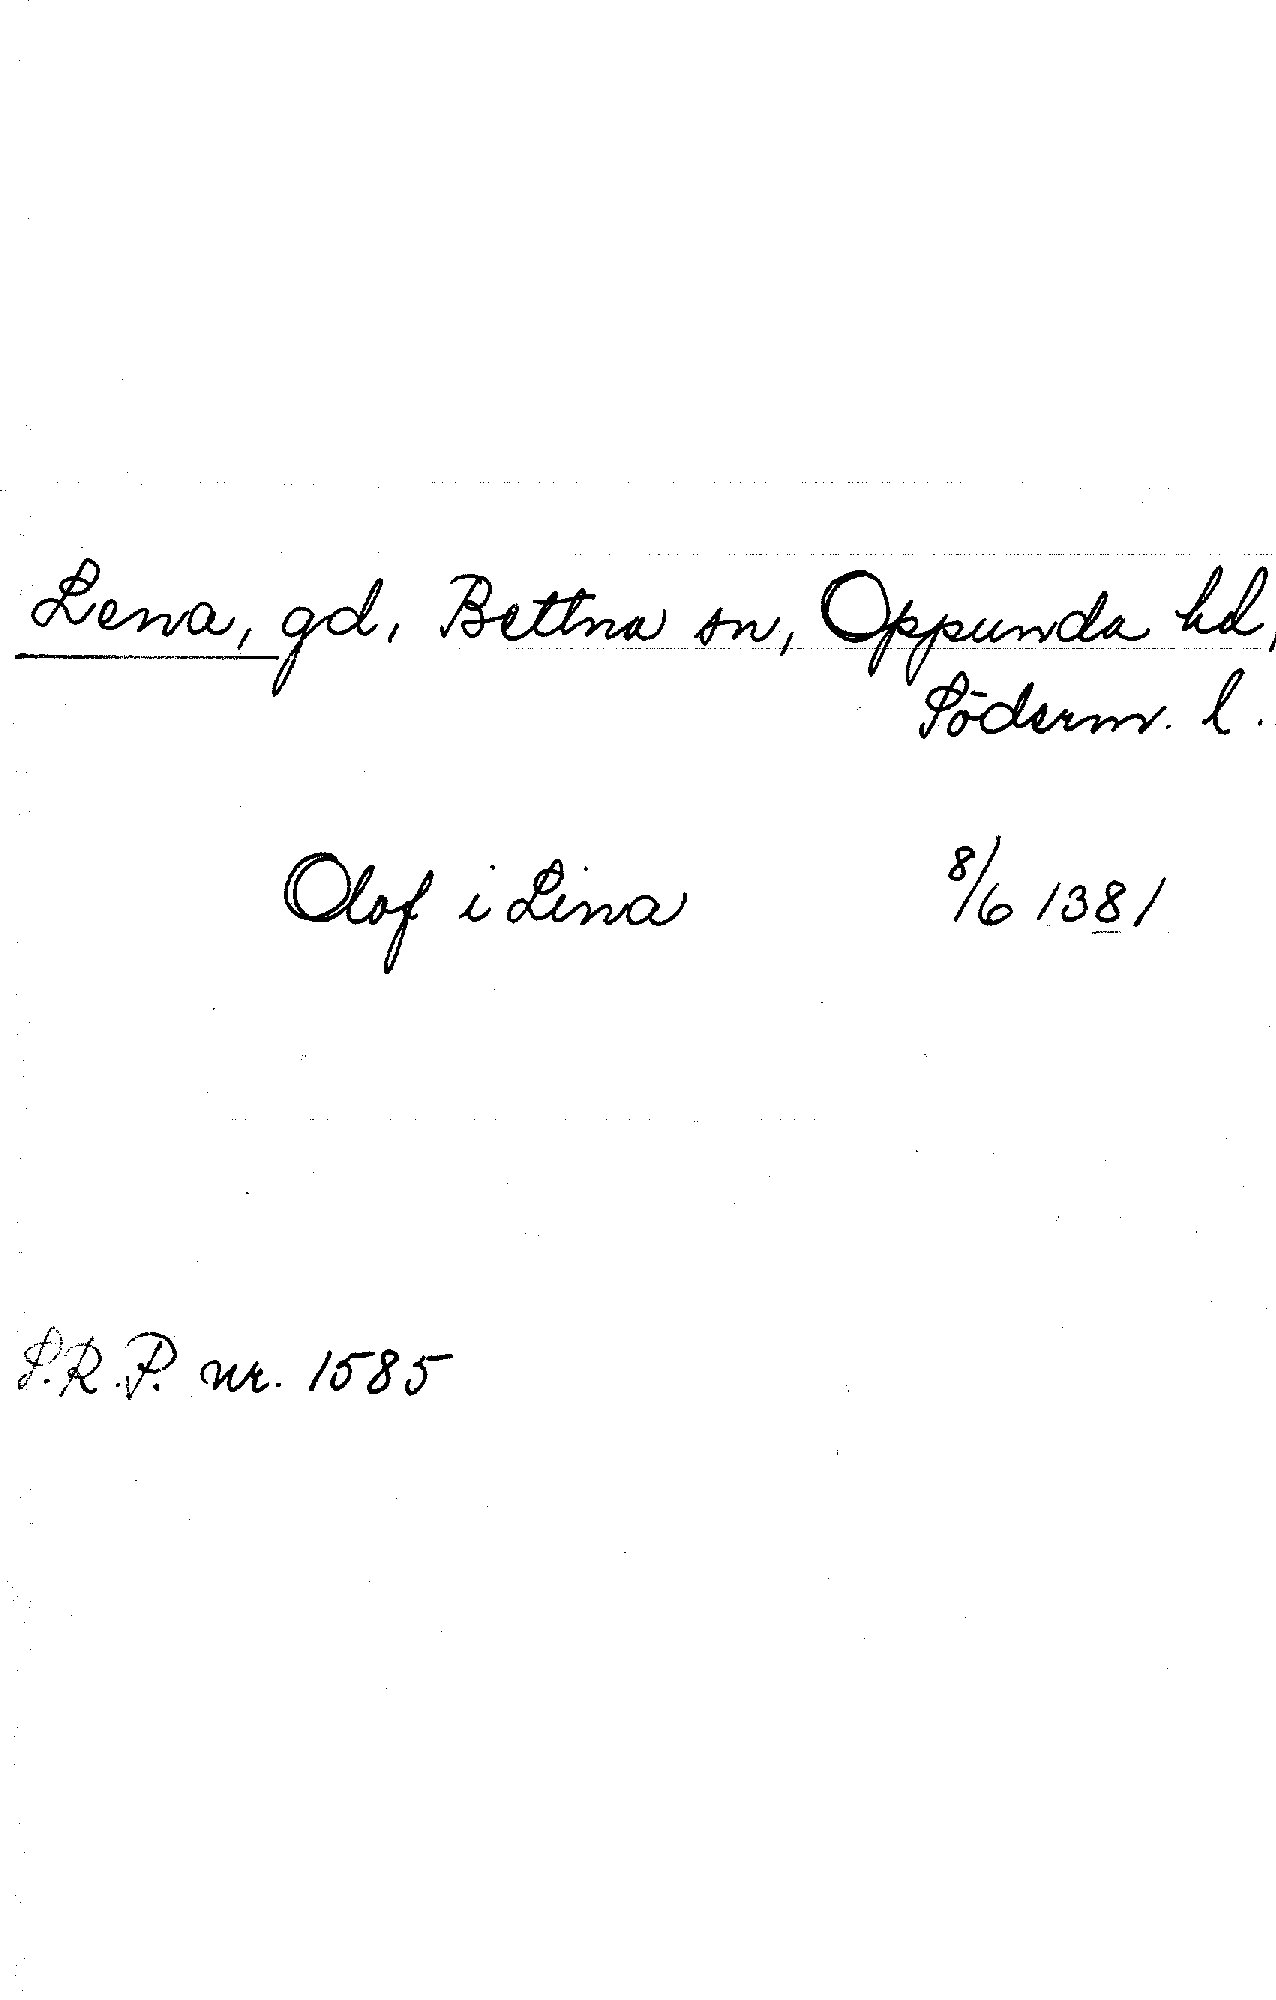 Lena, gd, Bettna sn, Oppunda hd,
Söderm. l.
Olof i Lina 8/6 1381
S.R.P. nr. 1585